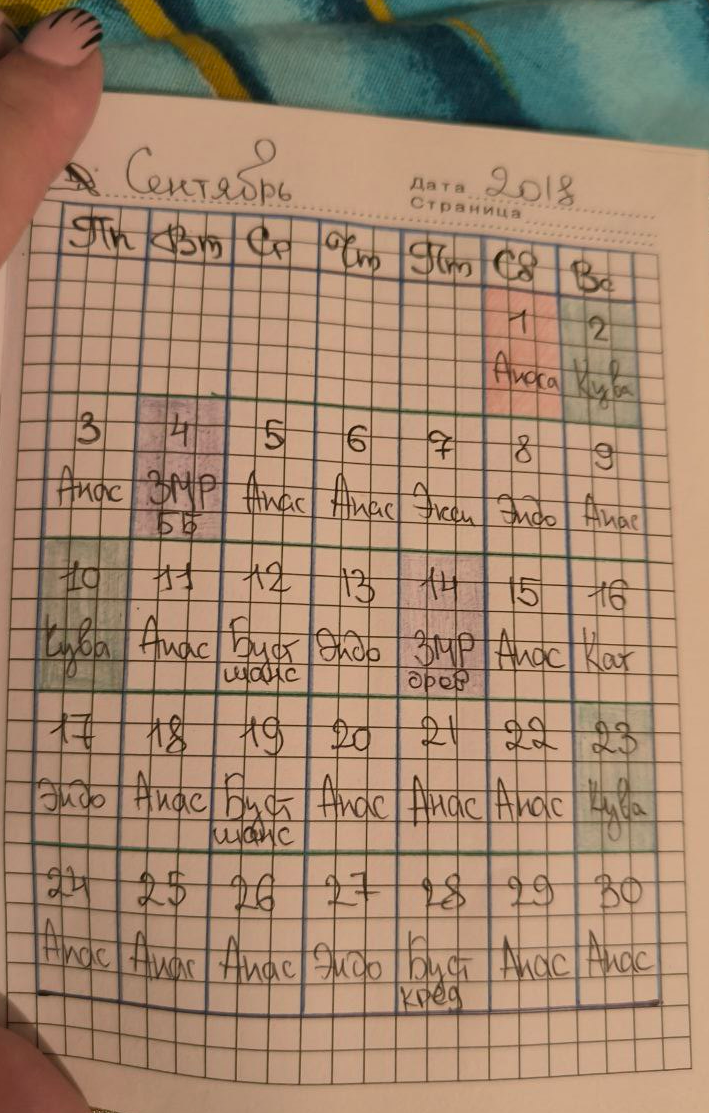 Сентябрь Дата 2018
Страница
Пн Вт Ср Чт Пт Сб Вс
1 2
Анаса Кува
3 4 5 6 7 8 9
Анас ЗМР Анас Анас Экси Эндо Анас
ББ
10 11 12 13 14 15 16
Кува Анас Буст Эндо ЗМР Анас Кат
шанс орев
17 18 19 20 21 22 23
Эндо Анас Буст Анас Анас Анас Кува
шанс
24 25 26 27 28 29 30
Анас Анас Анас Эндо Буст Анас Анас
кред